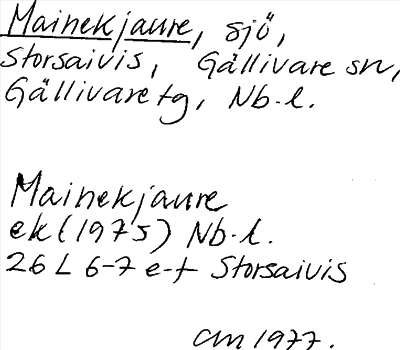 Mainekjaure, sjö,
Storsaivis, Gällivare sn,
Gällivare tg, Nb. l.
Mainekjaure
ek (1975) Nb. l.
26 L 6-7 e-f Storsaivis
CM 1977.